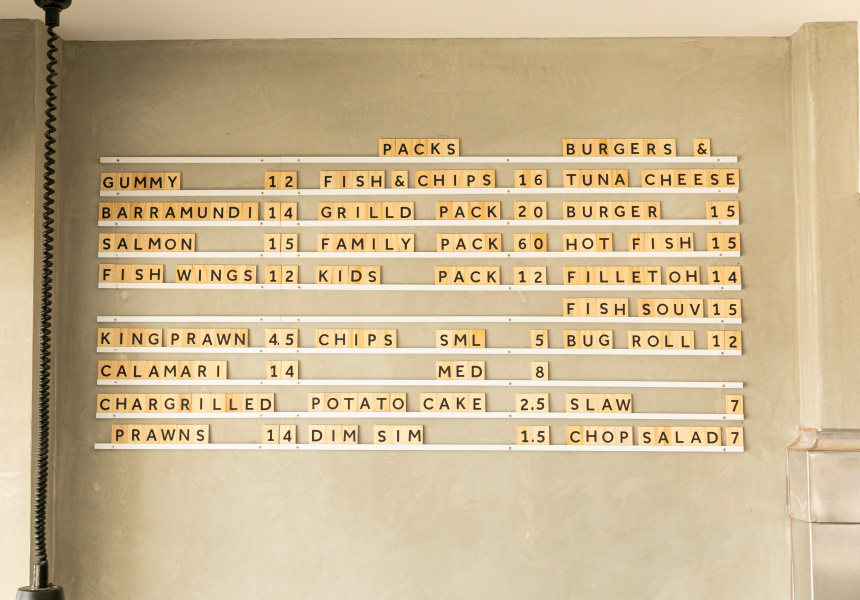 PACKS BURGERS &
GUMMY 12 FISH & CHIPS 16 TUNA CHEESE
BARRAMUNDI 14 GRILLD PACK 20 BURGER 15
SALMON 15 FAMILY PACK 60 HOT FISH 15
FISH WINGS 12 KIDS PACK 12 FILLETOH 14
FISH SOUV 15
KING PRAWN 4.5 CHIPS SML 5 BUG ROLL 12
CALAMARI 14 MED 8
CHARGRILLED POTATO CAKE 2.5 SLAW 7
PRAWNS 14 DIM SIM 1.5 CHOP SALAD 7